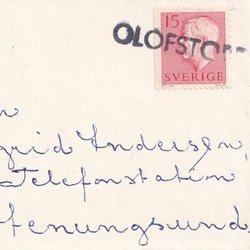 15
OLOFSTO
SVERIGE
n
grid Andersen,
Telefonstation
tenungsund